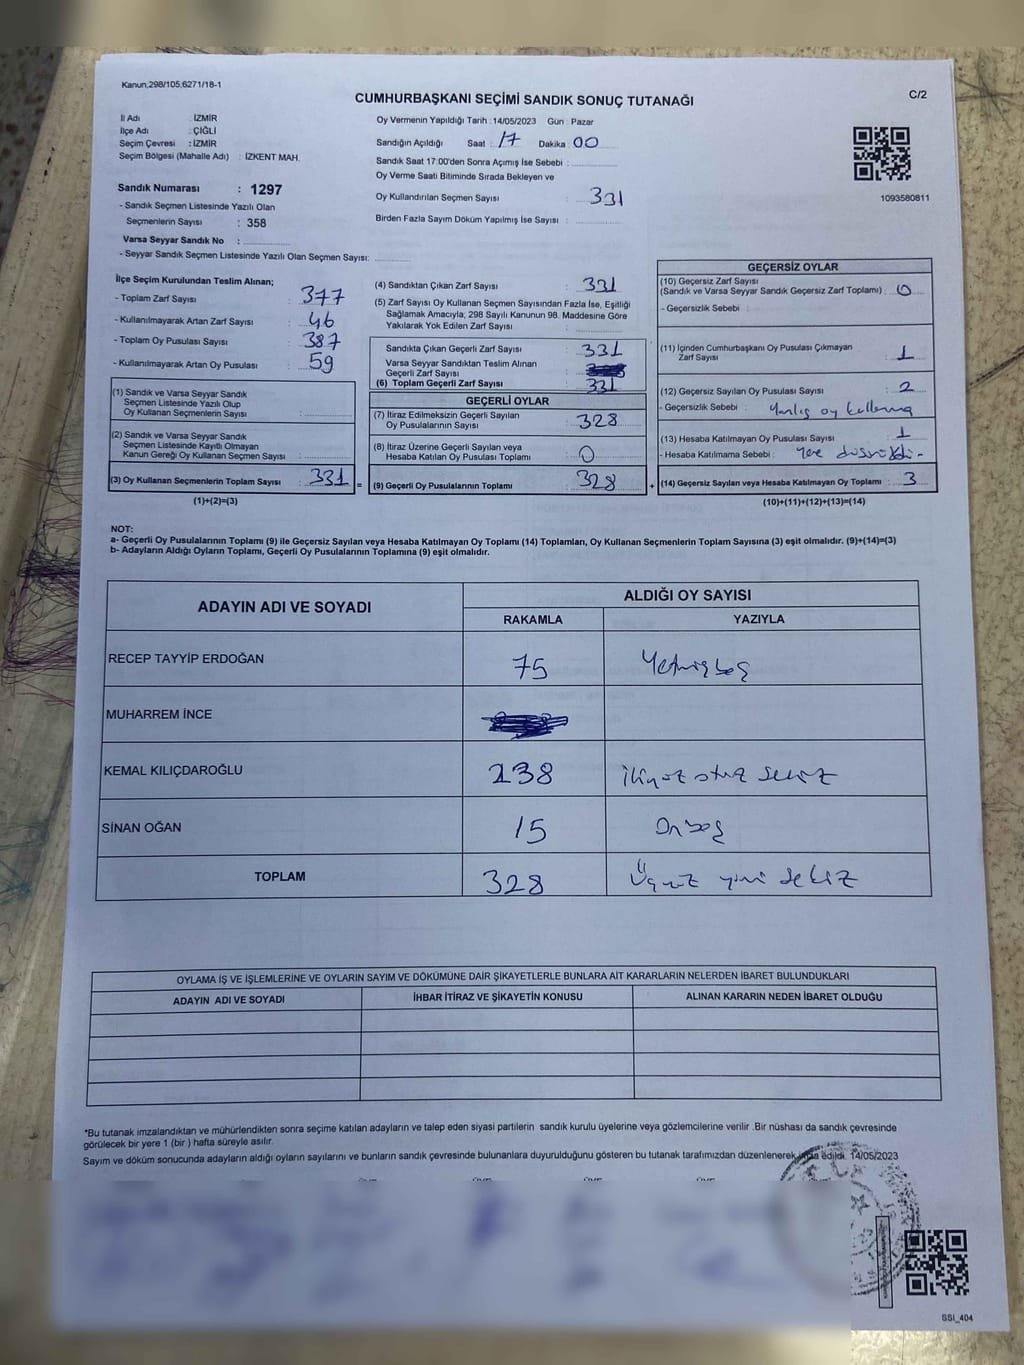 Kanun,298/105,6271/18-1
C/2
CUMHURBAŞKANI SEÇİMİ SANDIK SONUÇ TUTANAĞI
İl Adı : İZMİR
İlçe Adı : ÇİĞLİ
Seçim Çevresi : İZMİR
Seçim Bölgesi (Mahalle Adı) : İZKENT MAH.
Sandık Numarası : 1297
- Sandık Seçmen Listesinde Yazılı Olan
Seçmenlerin Sayısı : 358
Varsa Seyyar Sandık No :
- Seyyar Sandık Seçmen Listesinde Yazılı Olan Seçmen Sayısı:
Oy Vermenin Yapıldığı Tarih :14/05/2023 Gün : Pazar
Sandığın Açıldığı Saat : 17 Dakika : 00
Sandık Saat 17:00'den Sonra Açımış İse Sebebi :
Oy Verme Saati Bitiminde Sırada Bekleyen ve
Oy Kullandırılan Seçmen Sayısı : 331
Birden Fazla Sayım Döküm Yapılmış İse Sayısı :
1093580811
İlçe Seçim Kurulundan Teslim Alınan;
- Toplam Zarf Sayısı : 377
- Kullanılmayarak Artan Zarf Sayısı : 46
- Toplam Oy Pusulası Sayısı : 387
- Kullanılmayarak Artan Oy Pusulası : 59
(1) Sandık ve Varsa Seyyar Sandık
Seçmen Listesinde Yazılı Olup
Oy Kullanan Seçmenlerin Sayısı :
(2) Sandık ve Varsa Seyyar Sandık
Seçmen Listesinde Kayıtlı Olmayan
Kanun Gereği Oy Kullanan Seçmen Sayısı :
(3) Oy Kullanan Seçmenlerin Toplam Sayısı : 331 =
(1)+(2)=(3)
(4) Sandıktan Çıkan Zarf Sayısı : 331
(5) Zarf Sayısı Oy Kullanan Seçmen Sayısından Fazla İse, Eşitliği
Sağlamak Amacıyla, 298 Sayılı Kanunun 98. Maddesine Göre
Yakılarak Yok Edilen Zarf Sayısı :
Sandıkta Çıkan Geçerli Zarf Sayısı : 331
Varsa Seyyar Sandıktan Teslim Alınan
Geçerli Zarf Sayısı :
(6) Toplam Geçerli Zarf Sayısı : 331
GEÇERLİ OYLAR
(7) İtiraz Edilmeksizin Geçerli Sayılan
Oy Pusulalarının Sayısı : 328
(8) İtiraz Üzerine Geçerli Sayılan veya
Hesaba Katılan Oy Pusulası Toplamı : 0
(9) Geçerli Oy Pusulalarının Toplamı : 328 +
GEÇERSİZ OYLAR
(10) Geçersiz Zarf Sayısı
(Sandık ve Varsa Seyyar Sandık Geçersiz Zarf Toplamı) : 0
- Geçersizlik Sebebi :
(11) İçinden Cumhurbaşkanı Oy Pusulası Çıkmayan
Zarf Sayısı : 1
(12) Geçersiz Sayılan Oy Pusulası Sayısı : 2
- Geçersizlik Sebebi : Yanlış oy kullanma
(13) Hesaba Katılmayan Oy Pusulası Sayısı : 1
- Hesaba Katılmama Sebebi : Yere
(14) Geçersiz Sayılan veya Hesaba Katılmayan Oy Toplamı : 3
(10)+(11)+(12)+(13)=(14)
NOT:
a- Geçerli Oy Pusulalarının Toplamı (9) ile Geçersiz Sayılan veya Hesaba Katılmayan Oy Toplamı (14) Toplamları, Oy Kullanan Seçmenlerin Toplam Sayısına (3) eşit olmalıdır. (9)+(14)=(3)
b- Adayların Aldığı Oyların Toplamı, Geçerli Oy Pusulalarının Toplamına (9) eşit olmalıdır.
ADAYIN ADI VE SOYADI
ALDIĞI OY SAYISI
RAKAMLA YAZIYLA
RECEP TAYYİP ERDOĞAN 75 Yetmişbeş
MUHARREM İNCE
KEMAL KILIÇDAROĞLU 238 ikiyüz otuz sekiz
SİNAN OĞAN 15 Onbeş
TOPLAM 328 Üçyüz yirmi sekiz
OYLAMA İŞ VE İŞLEMLERİNE VE OYLARIN SAYIM VE DÖKÜMÜNE DAİR ŞİKAYETLERLE BUNLARA AİT KARARLARIN NELERDEN İBARET BULUNDUKLARI
ADAYIN ADI VE SOYADI İHBAR İTİRAZ VE ŞİKAYETİN KONUSU ALINAN KARARIN NEDEN İBARET OLDUĞU
*Bu tutanak imzalandıktan ve mühürlendikten sonra seçime katılan adayların ve talep eden siyasi partilerin sandık kurulu üyelerine veya gözlemcilerine verilir .Bir nüshası da sandık çevresinde
görülecek bir yere 1 (bir ) hafta süreyle asılır.
Sayım ve döküm sonucunda adayların aldığı oyların sayılarını ve bunların sandık çevresinde bulunanlara duyurulduğunu gösteren bu tutanak tarafımızdan düzenlenerek edildi. 14/05/2023
SSI_404